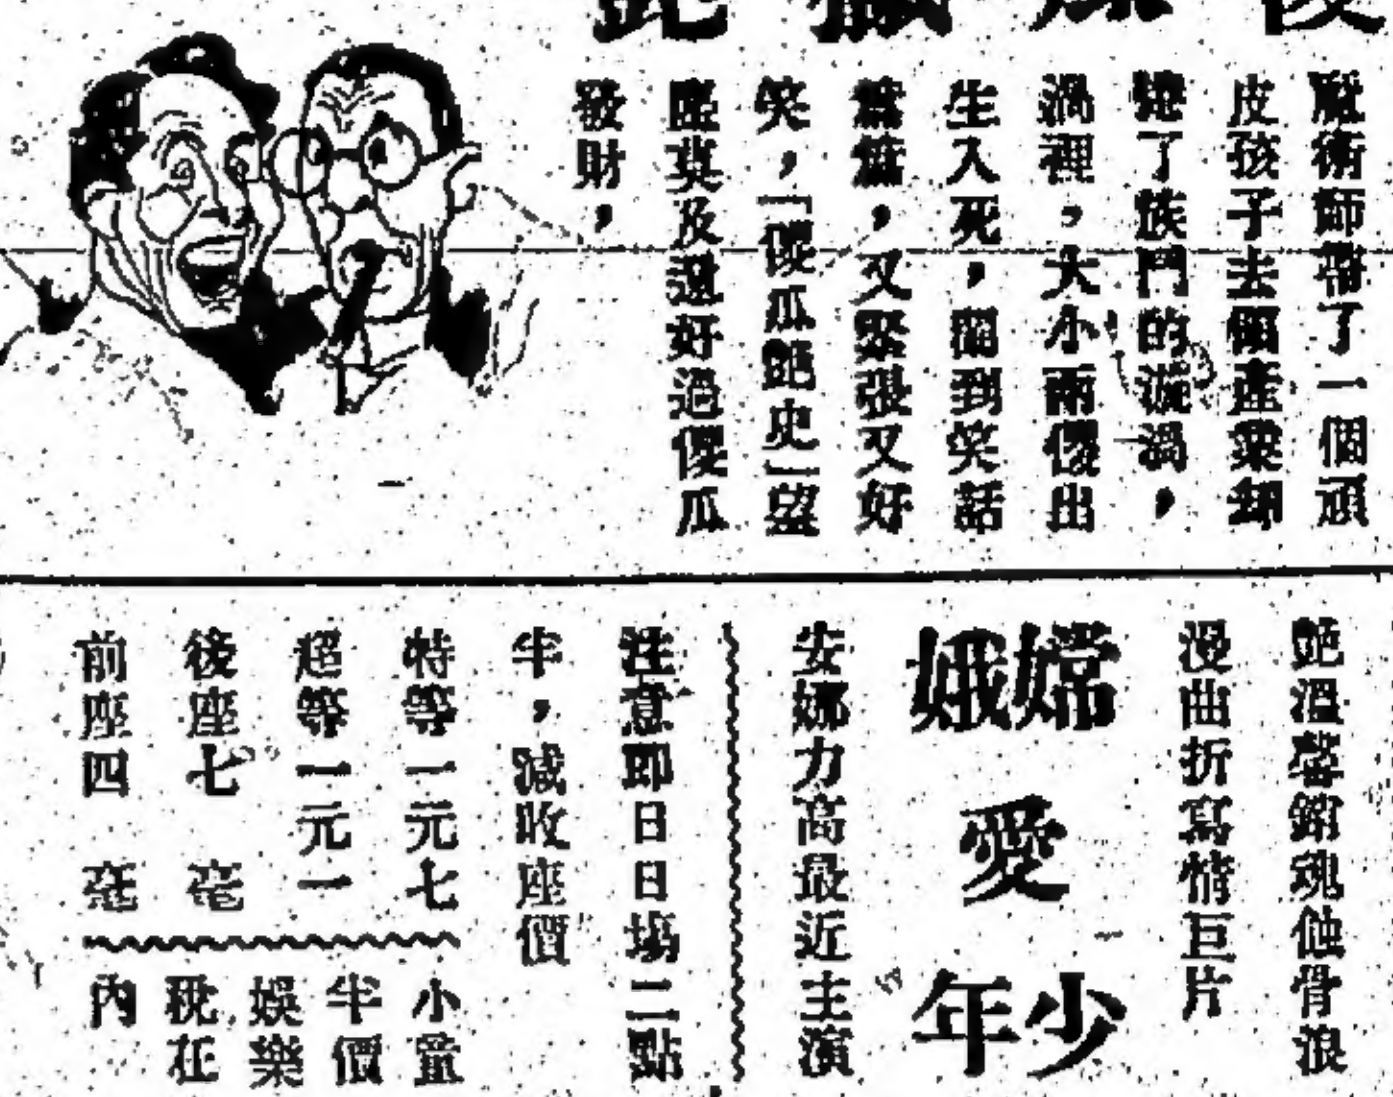 魔術師帶了一個頑
皮孩子去領產業却
捲了族門的漩渦，
渦裡，大小兩傻出
生入死，鬧到笑話
篇篇，又緊張又好
笑，「傻瓜艶史」望
塵莫及還好過傻瓜
發財，
艶溫馨銷魂蝕骨浪
漫曲折寫情巨片
嫦娥
愛
少年
安娜力高最近主演
注意即日日場二點
半，減收座價
特等一元七
超等一元一
後座七毫
前座四毫
小童
半價
娛樂
稅在
內